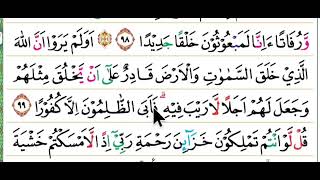 وَّرُفَاتًا ءَاِنَّا لَمَبْعُوْثُوْنَ خَلْقًا جَدِيْدًا ٩٨ اَوَلَمْ يَرَوْا اَنَّ اللّٰهَ
الَّذِيْ خَلَقَ السَّمٰوٰتِ وَالْاَرْضَ قَادِرٌ عَلٰٓى اَنْ يَّخْلُقَ مِثْلَهُمْ
وَجَعَلَ لَهُمْ اَجَلًا لَّا رَيْبَ فِيْهِۗ فَاَبَى الظّٰلِمُوْنَ اِلَّا كُفُوْرًا ٩٩
قُلْ لَّوْ اَنْتُمْ تَمْلِكُوْنَ خَزَاۤىِٕنَ رَحْمَةِ رَبِّيْٓ اِذًا لَّاَمْسَكْتُمْ خَشْيَةَ